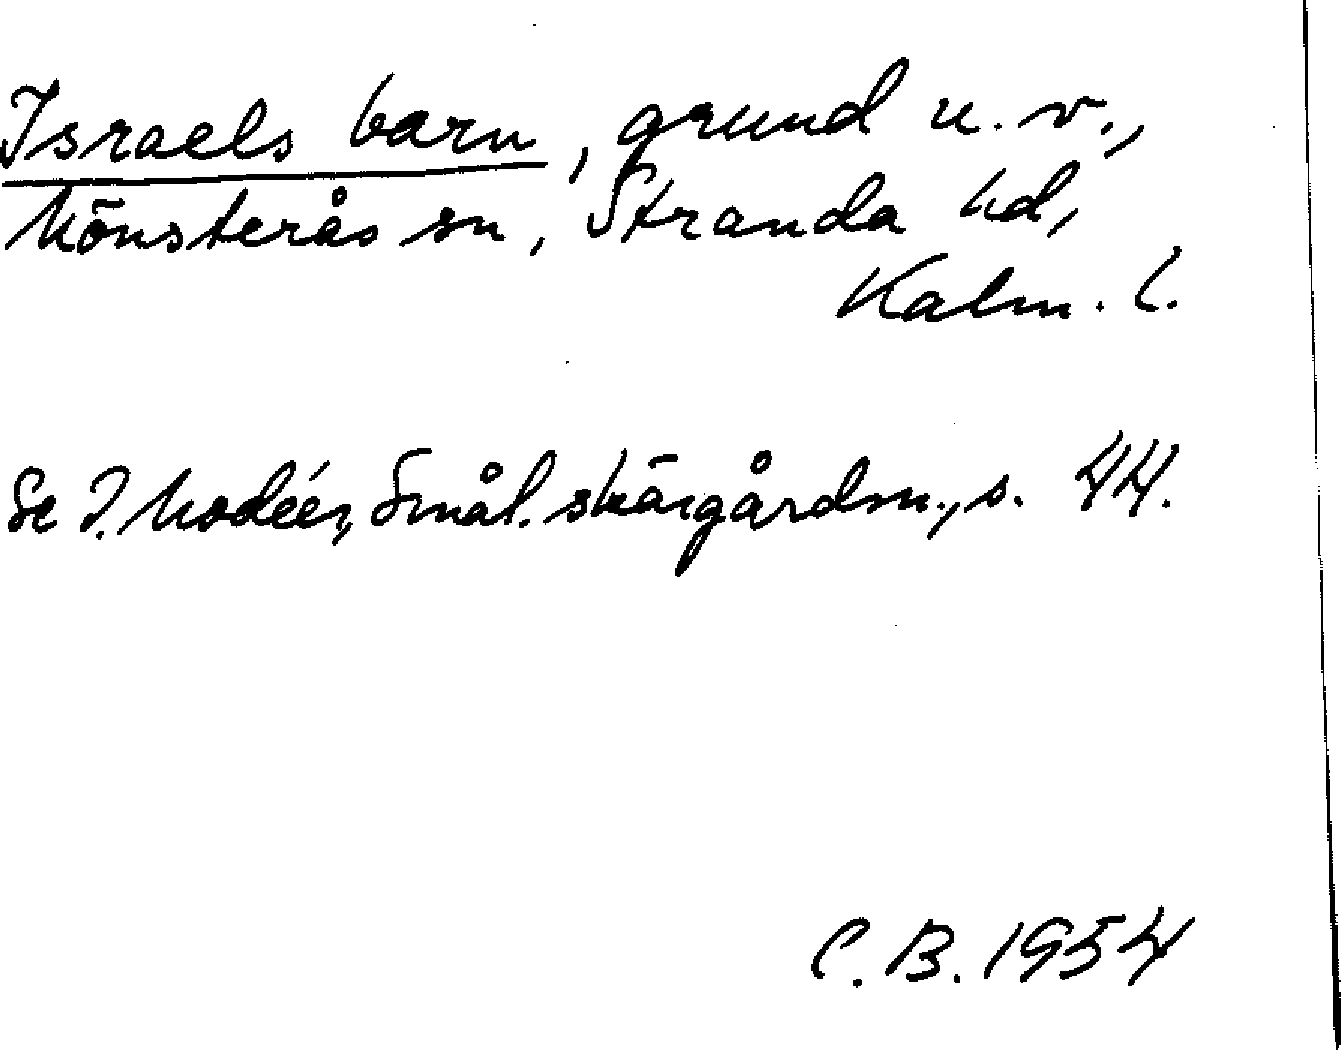 Israels barn, grund u. v.,
Mönsterås sn, Stranda hd,
Kalm. l.
Se I. Modéer, Smål. skärgårdsn., s. 44.
C. B. 1954